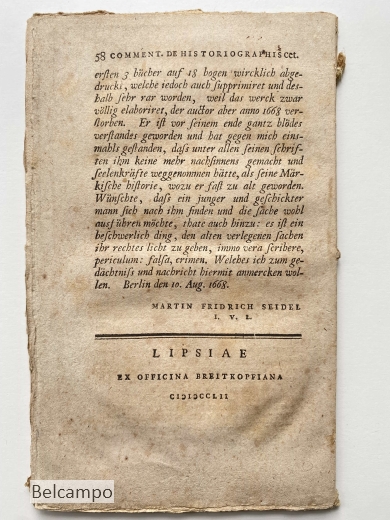 58 COMMENT. DE HISTORIOGRAPHIS cet.
ersten 3 bücher auf 18 bogen wircklich abge-
druckt, welche iedoch auch supprimiret und des-
halb sehr rar worden, weil das werck zwar
völlig elaboriret, der auctor aber anno 1668 ver-
storben. Er ist vor seinem ende gantz blödes
verstandes geworden und hat gegen mich eins-
mahls gestanden, dass unter allen seinen schrif-
ten ihm keine mehr nachsinnens gemacht und
seelenkräfte weggenommen hätte, als seine Mär-
kische historie, wozu er fast zu alt geworden.
Wünschte, dass ein junger und geschickter
mann sich nach ihm finden und die sache wohl
ausführen möchte, thate auch hinzu: es ist ein
beschwerlich ding, den alten verlegenen sachen
ihr rechtes licht zu geben, immo vera scribere,
periculum: falsa, crimen. Welches ich zum ge-
dächtniss und nachricht hiermit anmercken wol-
len. Berlin den 10. Aug. 1668.
MARTIN FRIDRICH SEIDEL
I. V. L.
LIPSIAE
EX OFFICINA BREITKOPFIANA
CIƆIƆCCLII
Belcampo